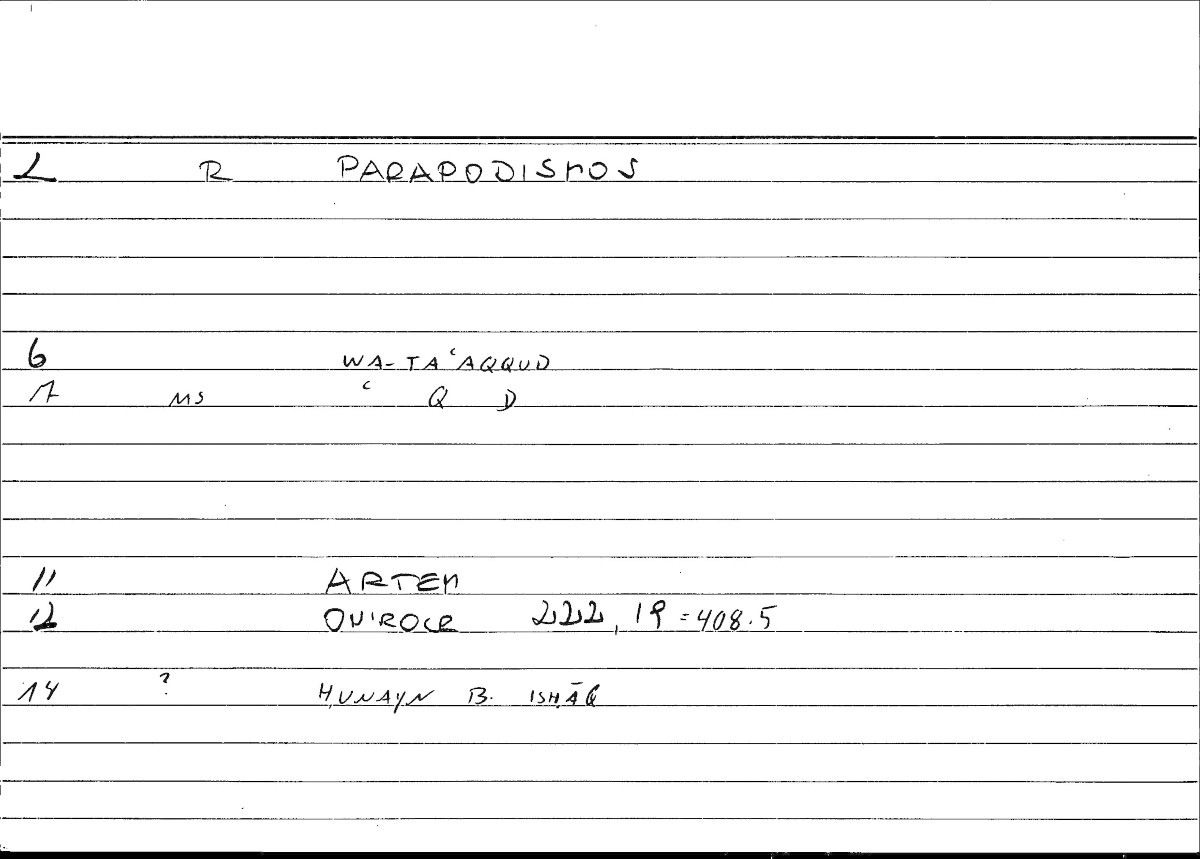 2 R PARAPODISMOS
6 WA-TAʿAQQUD
7 MS ʿ Q D
11 ARTEM
12 ONIROCR 222,19=408.5
14 ? ḤUNAYN B. ISḤĀQ